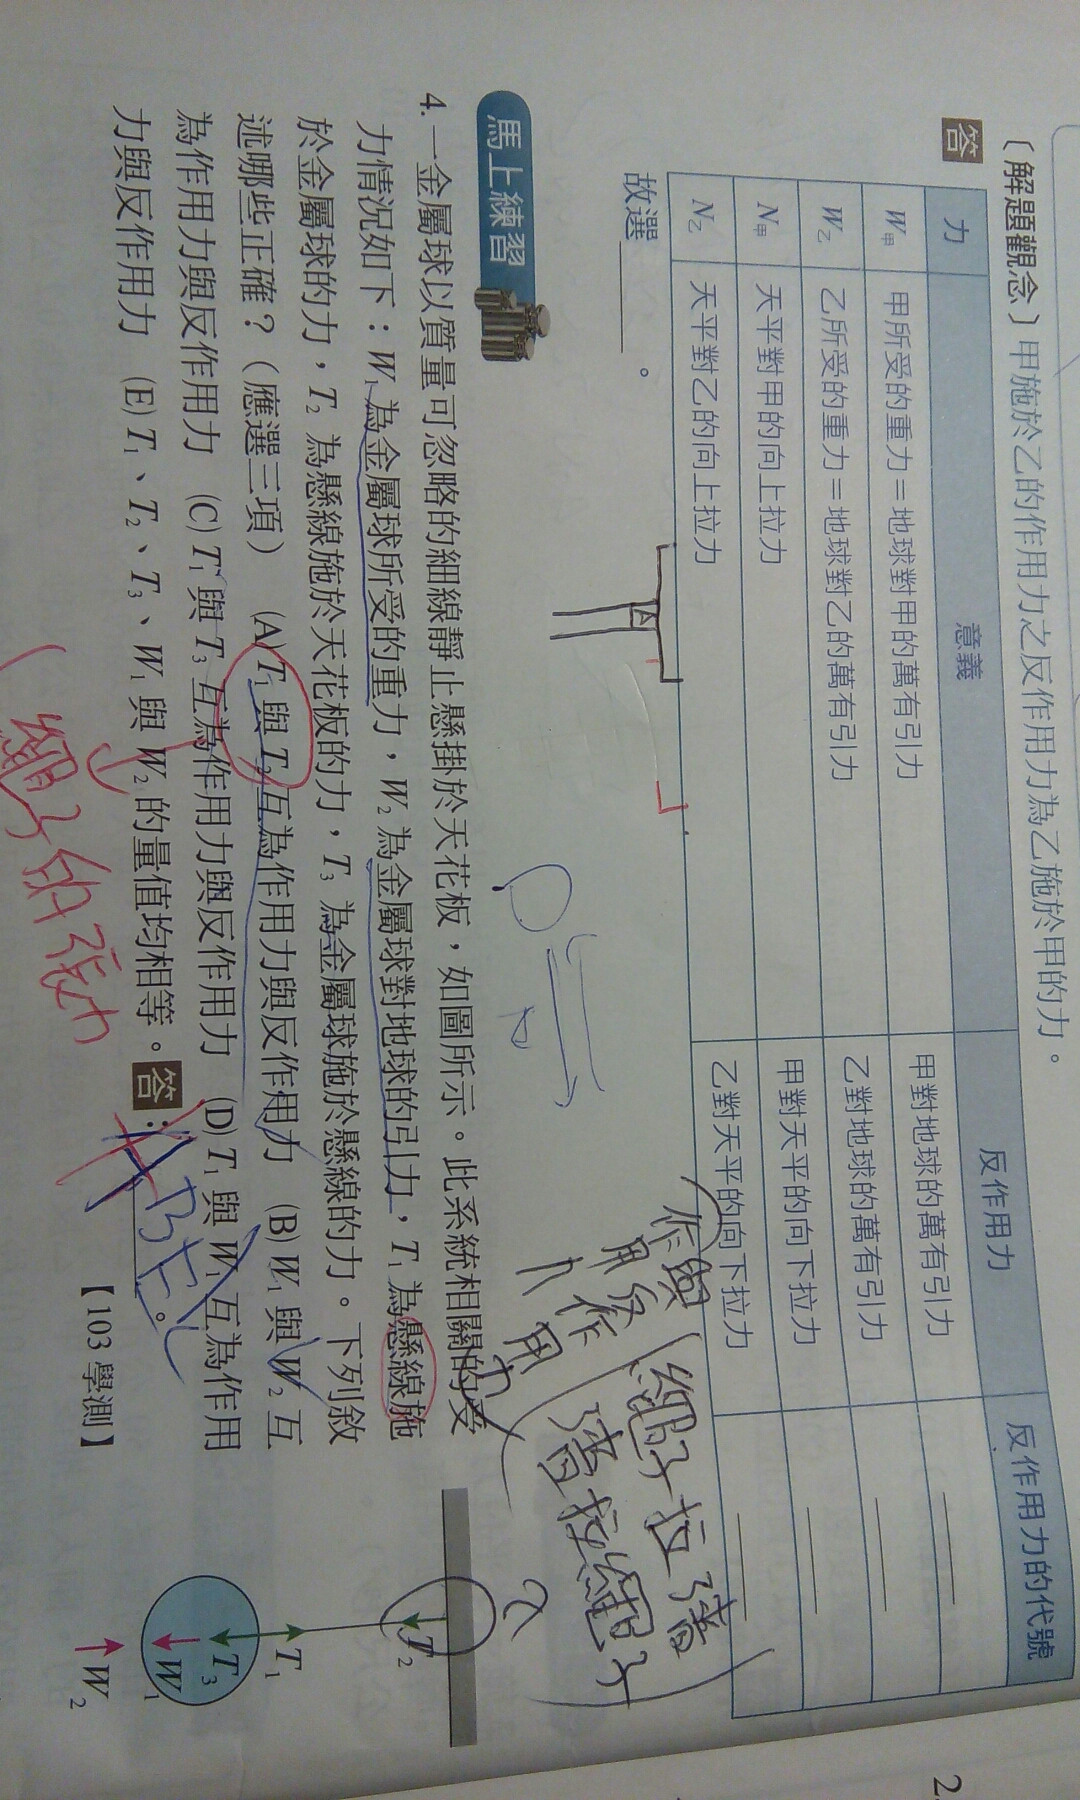 〔解題觀念〕甲施於乙的作用力之反作用力為乙施於甲的力。
答
力 意義 反作用力 反作用力的代號
W甲 甲所受的重力=地球對甲的萬有引力 甲對地球的萬有引力
W乙 乙所受的重力=地球對乙的萬有引力 乙對地球的萬有引力
N甲 天平對甲的向上拉力 甲對天平的向下拉力
N乙 天平對乙的向上拉力 乙對天平的向下拉力
故選 。
A
作用與反作用力
繩子拉牆
牆拉繩子
馬上練習
4. 一金屬球以質量可忽略的細線靜止懸掛於天花板,如圖所示。此系統相關的受
力情況如下:W1為金屬球所受的重力,W2為金屬球對地球的引力,T1為懸線施
於金屬球的力,T2為懸線施於天花板的力,T3為金屬球施於懸線的力。下列敘
述哪些正確?(應選三項) (A)T1與T2互為作用力與反作用力 (B)W1與W2互
為作用力與反作用力 (C)T1與T3互為作用力與反作用力 (D)T1與W1互為作用
力與反作用力 (E)T1、T2、T3、W1與W2的量值均相等。答:ABE。
【103 學測】
繩子的張力
T2
T1
T3
W1
W2